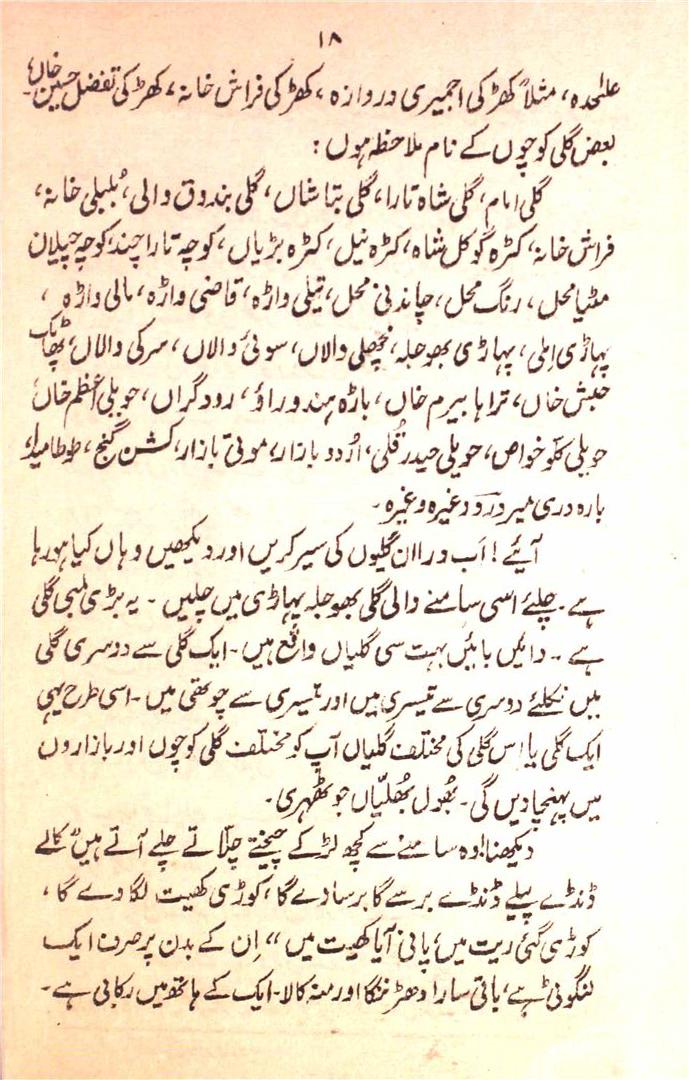 ۱۸
علٰحدہ، مثلاً کھڑکی اجمیری دروازہ، کھڑکی فراش خانہ، کھڑکی تفضل حسین خاں۔
بعض گلی کوچوں کے نام ملاحظہ ہوں:
گلی امام، گلی شاہ تارا، گلی بتاشاں، گلی بندوق والی، بُلبلی خانہ،
فراش خانہ، کٹرہ گوکل شاہ، کٹرہ نیل، کٹرہ بڑیاں، کوچہ تارا چند، کوچہ چیلان
مٹیا محل، رنگ محل، چاندنی محل، تیلی واڑہ، قاضی واڑہ، مالی واڑہ،
پہاڑی املی، پہاڑی بھوجلہ، مچھلی والاں، سوئی والاں، سرکی والاں، پھاٹک
حبش خاں، تراہا بیرم خاں، باڑہ ہندو راؤ، رودگراں، حویلی اعظم خاں،
حویلی کلّو خواص، حویلی حیدر قُلی، اُردو بازار، موتی بازار، کشن گنج،
بارہ دری میر درد وغیرہ وغیرہ۔
آیئے! اَب ذرا ان گلیوں کی سیر کریں اور دیکھیں وہاں کیا ہو رہا
ہے۔ چلئے اسی سامنے والی گلی بھوجلہ پہاڑی میں چلیں۔ یہ بڑی لمبی گلی
ہے۔۔ دائیں بائیں بہت سی گلیاں واقع ہیں۔ ایک گلی سے دوسری گلی
میں نکلئے دوسری سے تیسری میں اور تیسری سے چوتھی میں۔ اسی طرح یہی
ایک گلی یا اِس گلی کی مختلف گلیاں آپ کو مختلف گلی کوچوں اور بازاروں
میں پہنچا دیں گی۔ بھُول بھُلیّاں جو ٹھہری۔
دیکھنا! وہ سامنے سے کچھ لڑکے چیختے چلّاتے چلے آتے ہیں "کالے
ڈنڈے پیلے ڈنڈے برسے گا برسا دے گا، کوڑی کھیت لگا دے گا،
کوڑی گئی ریت میں، پانی آیا کھیت میں" اِن کے بدن پر صرف ایک
لنگوٹی ہے، باقی سارا دھڑ ننگا اور منہ کالا۔ ایک کے ہاتھ میں رکابی ہے۔